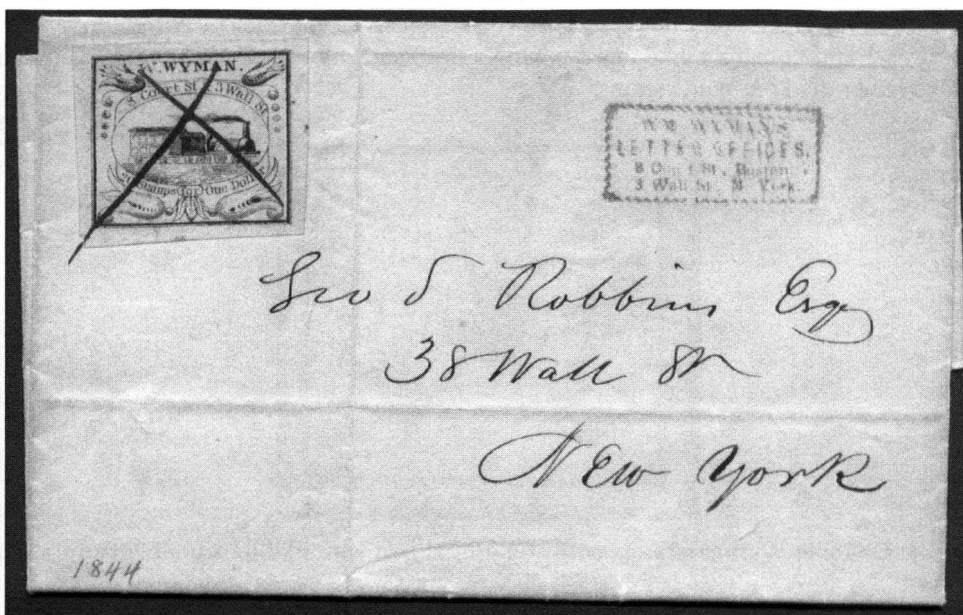 W. WYMAN.
8 Court St. & 3 Wall St.
20 Stamps for One Dollar
LETTER OFFICES,
8 Court St., Boston,
3 Wall St., N. York.
Geo S Robbins Esq
38 Wall St
New York
1844